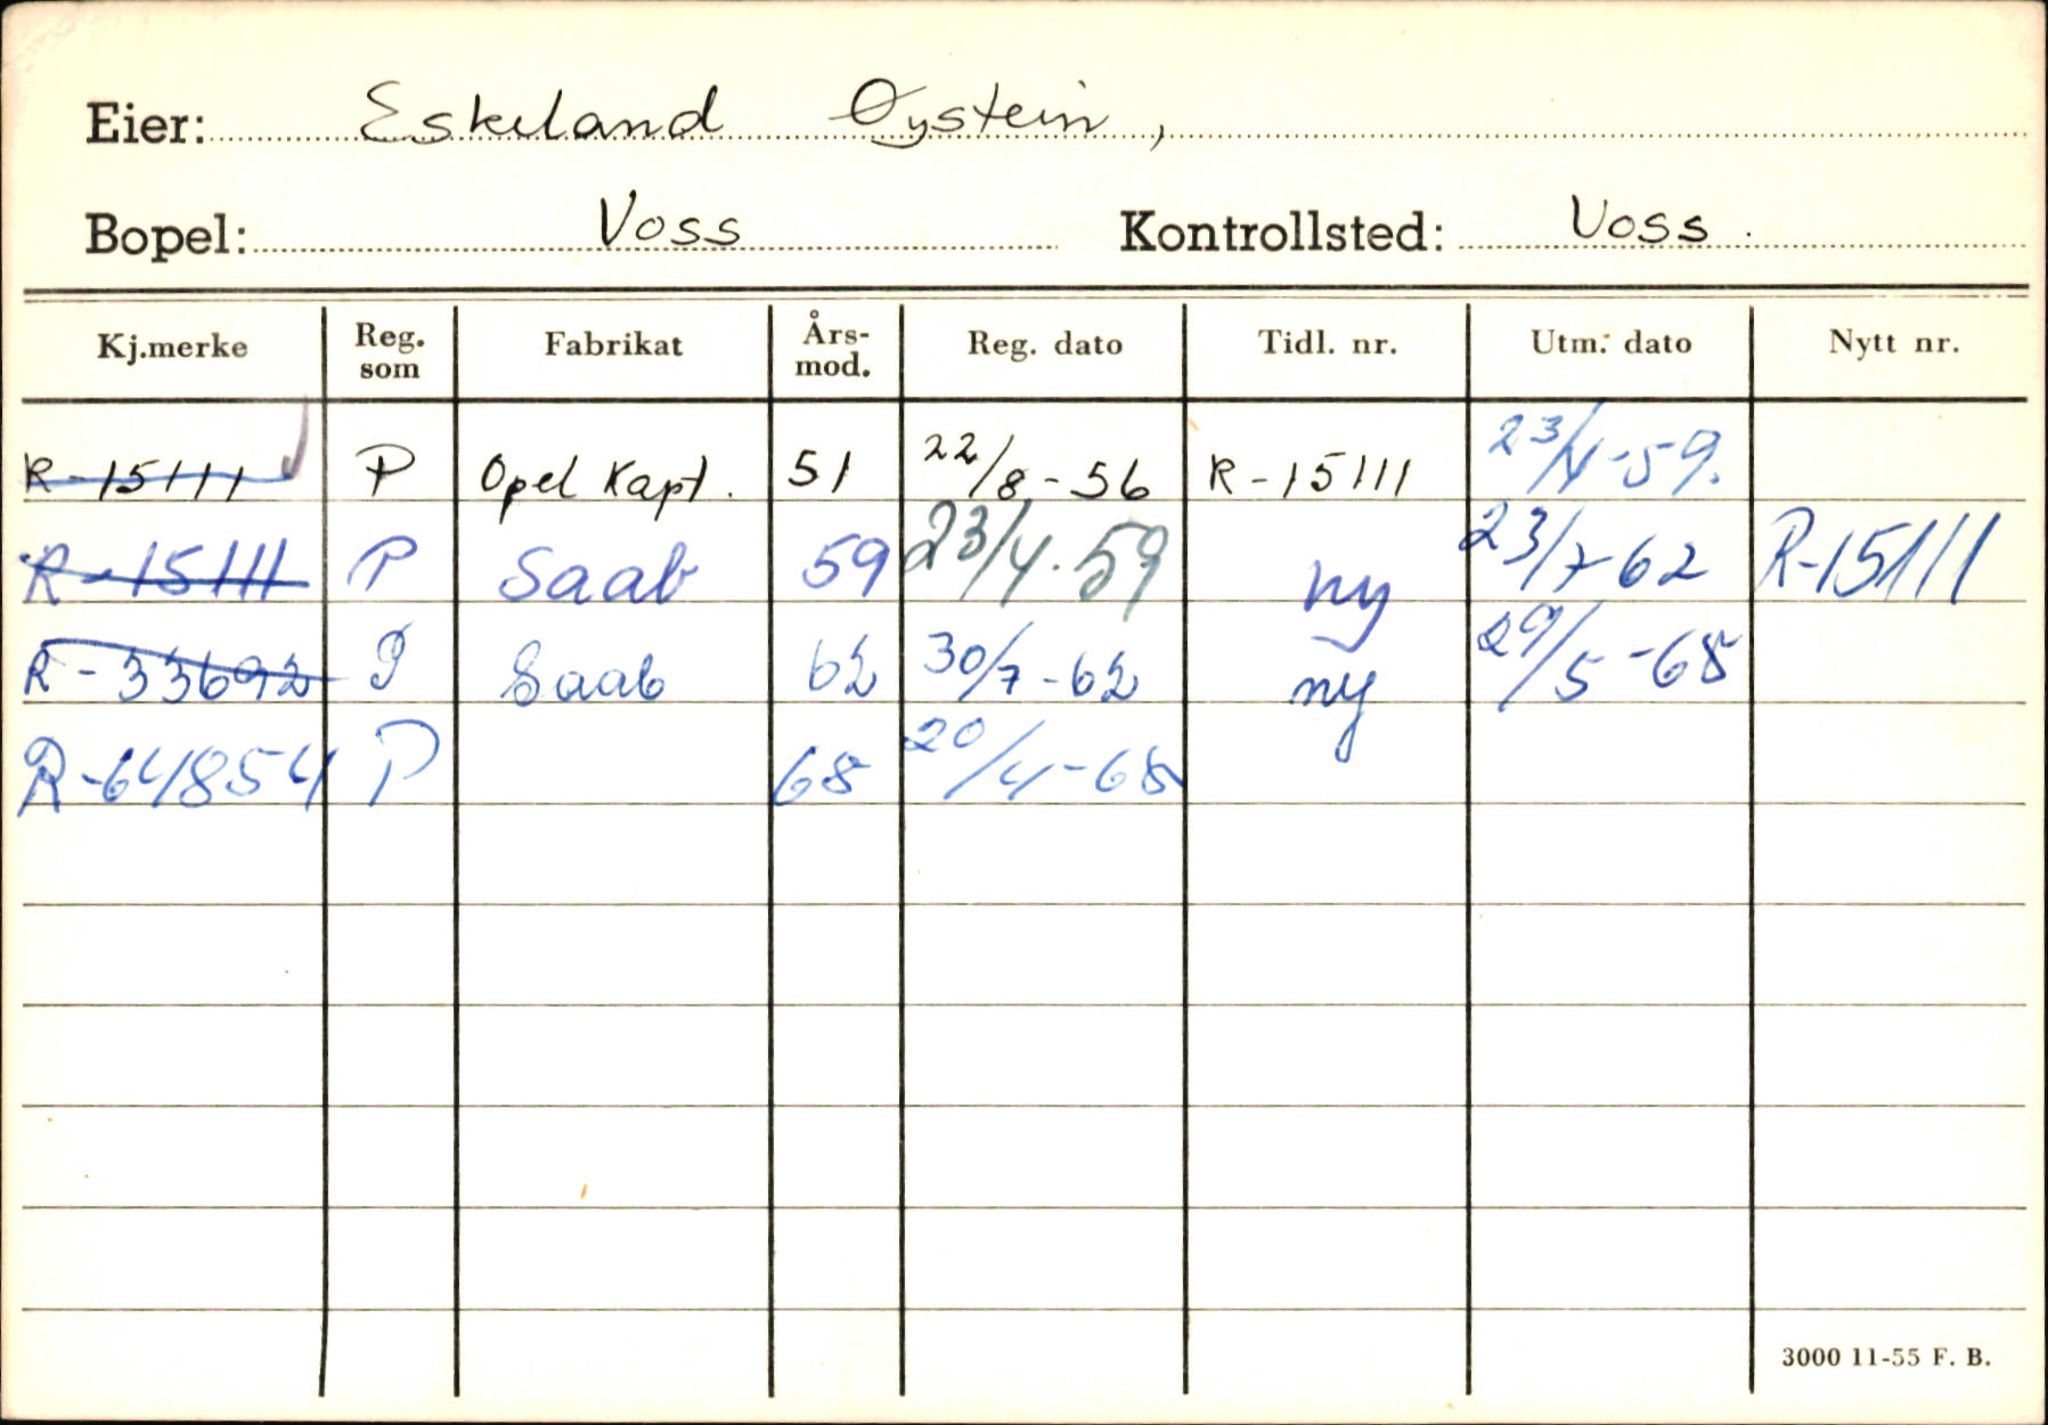 Eier: Eskeland Øystein,
Bopel: Voss Kontrollsted: Voss.
Kj.merke Reg. som Fabrikat Års-mod. Reg. dato Tidl. nr. Utm. dato Nytt nr.
R-15111 P Opel Kapt. 51 22/8-56 R-15111 23/4-59.
R-15111 P Saab 59 23/4.59 ny 23/7-62 R-15111
R-33692 P Saab 62 30/7-62 ny 29/5-68
R-64854 P 68 20/4-68
3000 11-55 F. B.